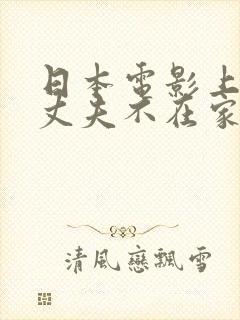 日本电影上
丈夫不在家
清風戀飄雪